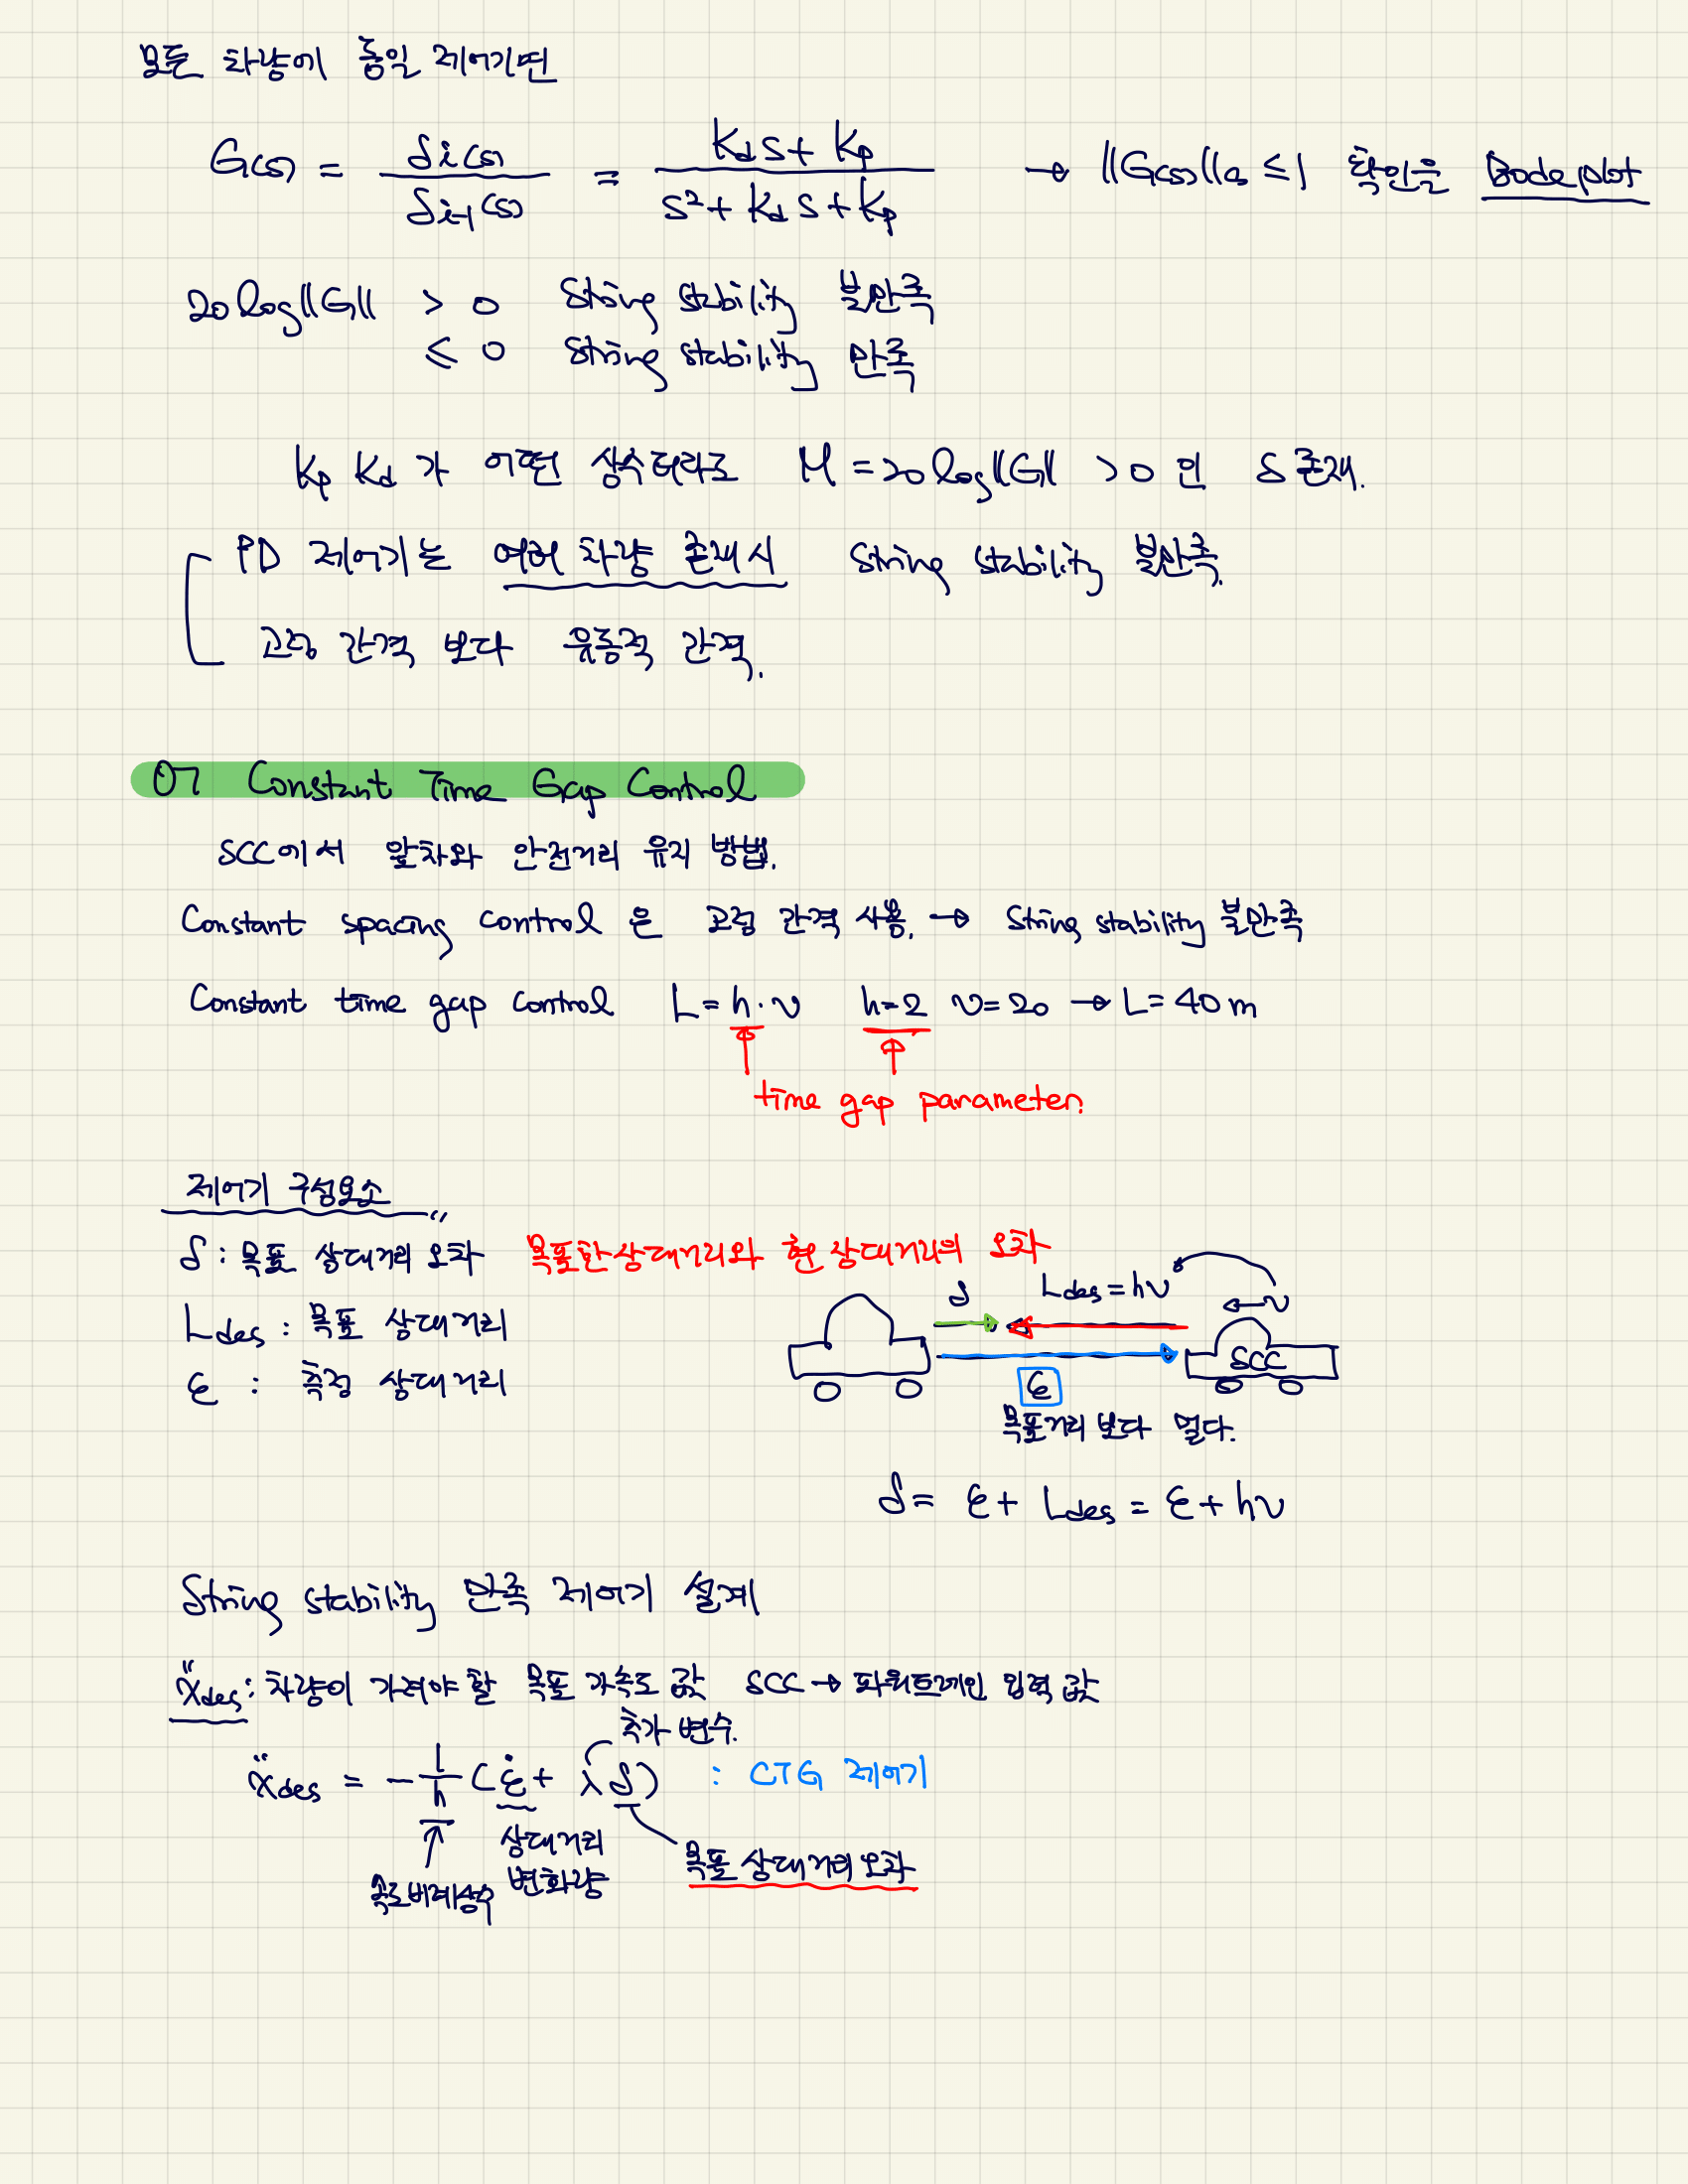 모든 차량에 동일 제어기면
G(s) = δi(s) / δi-1(s) = (Kd s + Kp) / (s² + Kd s + Kp) → ||G(s)||∞ ≤ 1 확인을 Bode plot
20 log||G|| > 0 String stability 불만족
≤ 0 String stability 만족
Kp Kd 가 어떤 상수더라도 M = 20 log||G|| > 0 인 s 존재.
PD 제어기는 여러 차량 존재시 String stability 불만족.
고정 간격 보다 유동적 간격.
07 Constant Time Gap Control
SCC에서 앞차와 안전거리 유지 방법.
Constant spacing control 은 고정 간격 사용. → String stability 불만족
Constant time gap control L = h·v h=2 v=20 → L=40m
time gap parameter
제어기 구성요소
δ : 목표 상대거리 오차 목표한 상대거리와 현 상대거리의 오차
Ldes : 목표 상대거리
ε : 측정 상대거리
δ Ldes = hv v
SCC
ε
목표거리 보다 멀다.
δ = ε + Ldes = ε + hv
String stability 만족 제어기 설계
ẍdes : 차량이 가져야 할 목표 가속도 값 SCC → 파워트레인 입력 값
추가 변수.
ẍdes = -1/h (ε̇ + λδ) : CTG 제어기
상대거리 변화량
목표 상대거리 오차